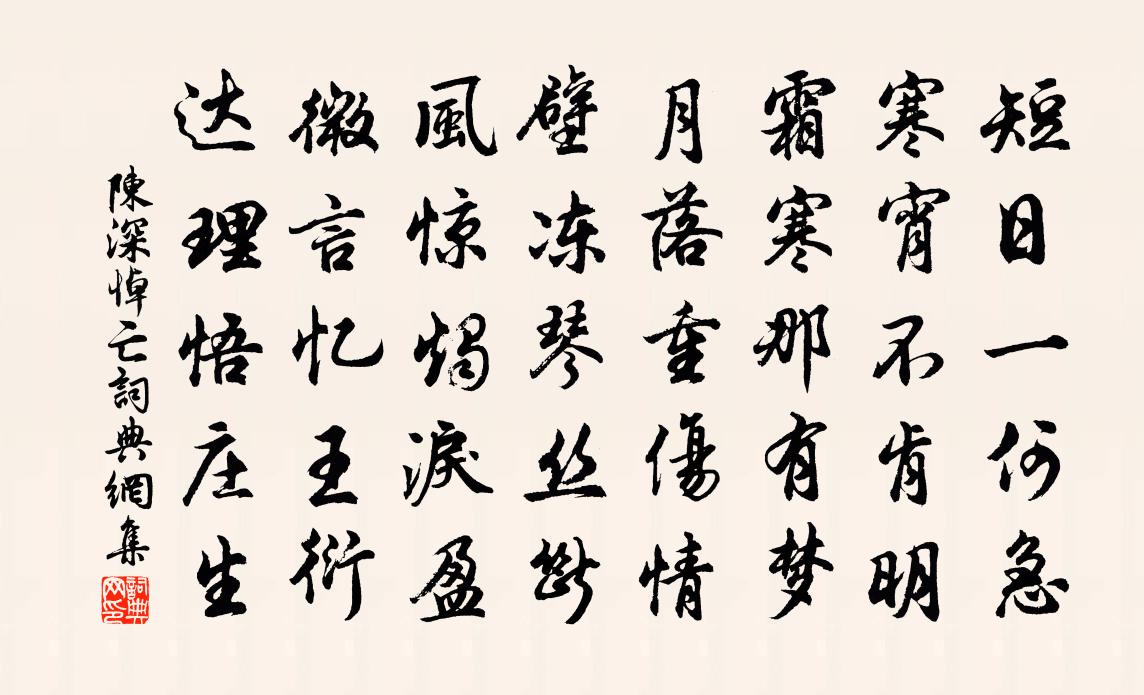 短日一何急
寒宵不肯明
霜寒那有梦
月落重傷情
壁冻琴丝断
風惊烛淚盈
微言忆王衍
达理悟庄生
陳深悼亡詞典網集
詞典网印